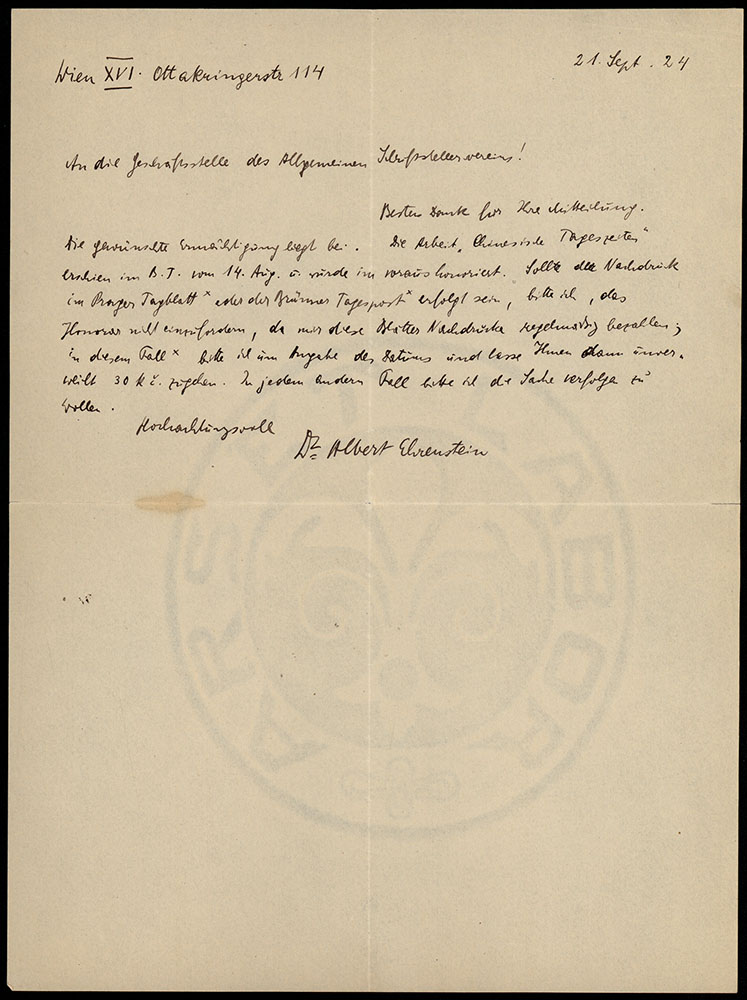 Wien XVI. Ottakringerstr 114
21. Sept. 24
An die Geschäftsstelle des Allgemeinen Schriftstellervereins!
Besten Dank für Ihre Mitteilung.
Die gewünschte Ermächtigung liegt bei. Die Arbeit „Chinesische Tageszeiten"
erschien im B.T. vom 14. Aug. u. wurde im voraus honoriert. Sollte der Nachdruck
im Prager Tagblatt x oder der Brünner Tagespost x erfolgt sein, bitte ich, das
Honorar nicht einzufordern, da mir diese Blätter Nachdrucke regelmässig bezahlen;
in diesem Fall x bitte ich um Angabe des Datums und lasse Ihnen dann unver-
weilt 30 Kč. zugehen. In jedem andern Fall bitte ich die Sache verfolgen zu
wollen.
Hochachtungsvoll
Dr Albert Ehrenstein